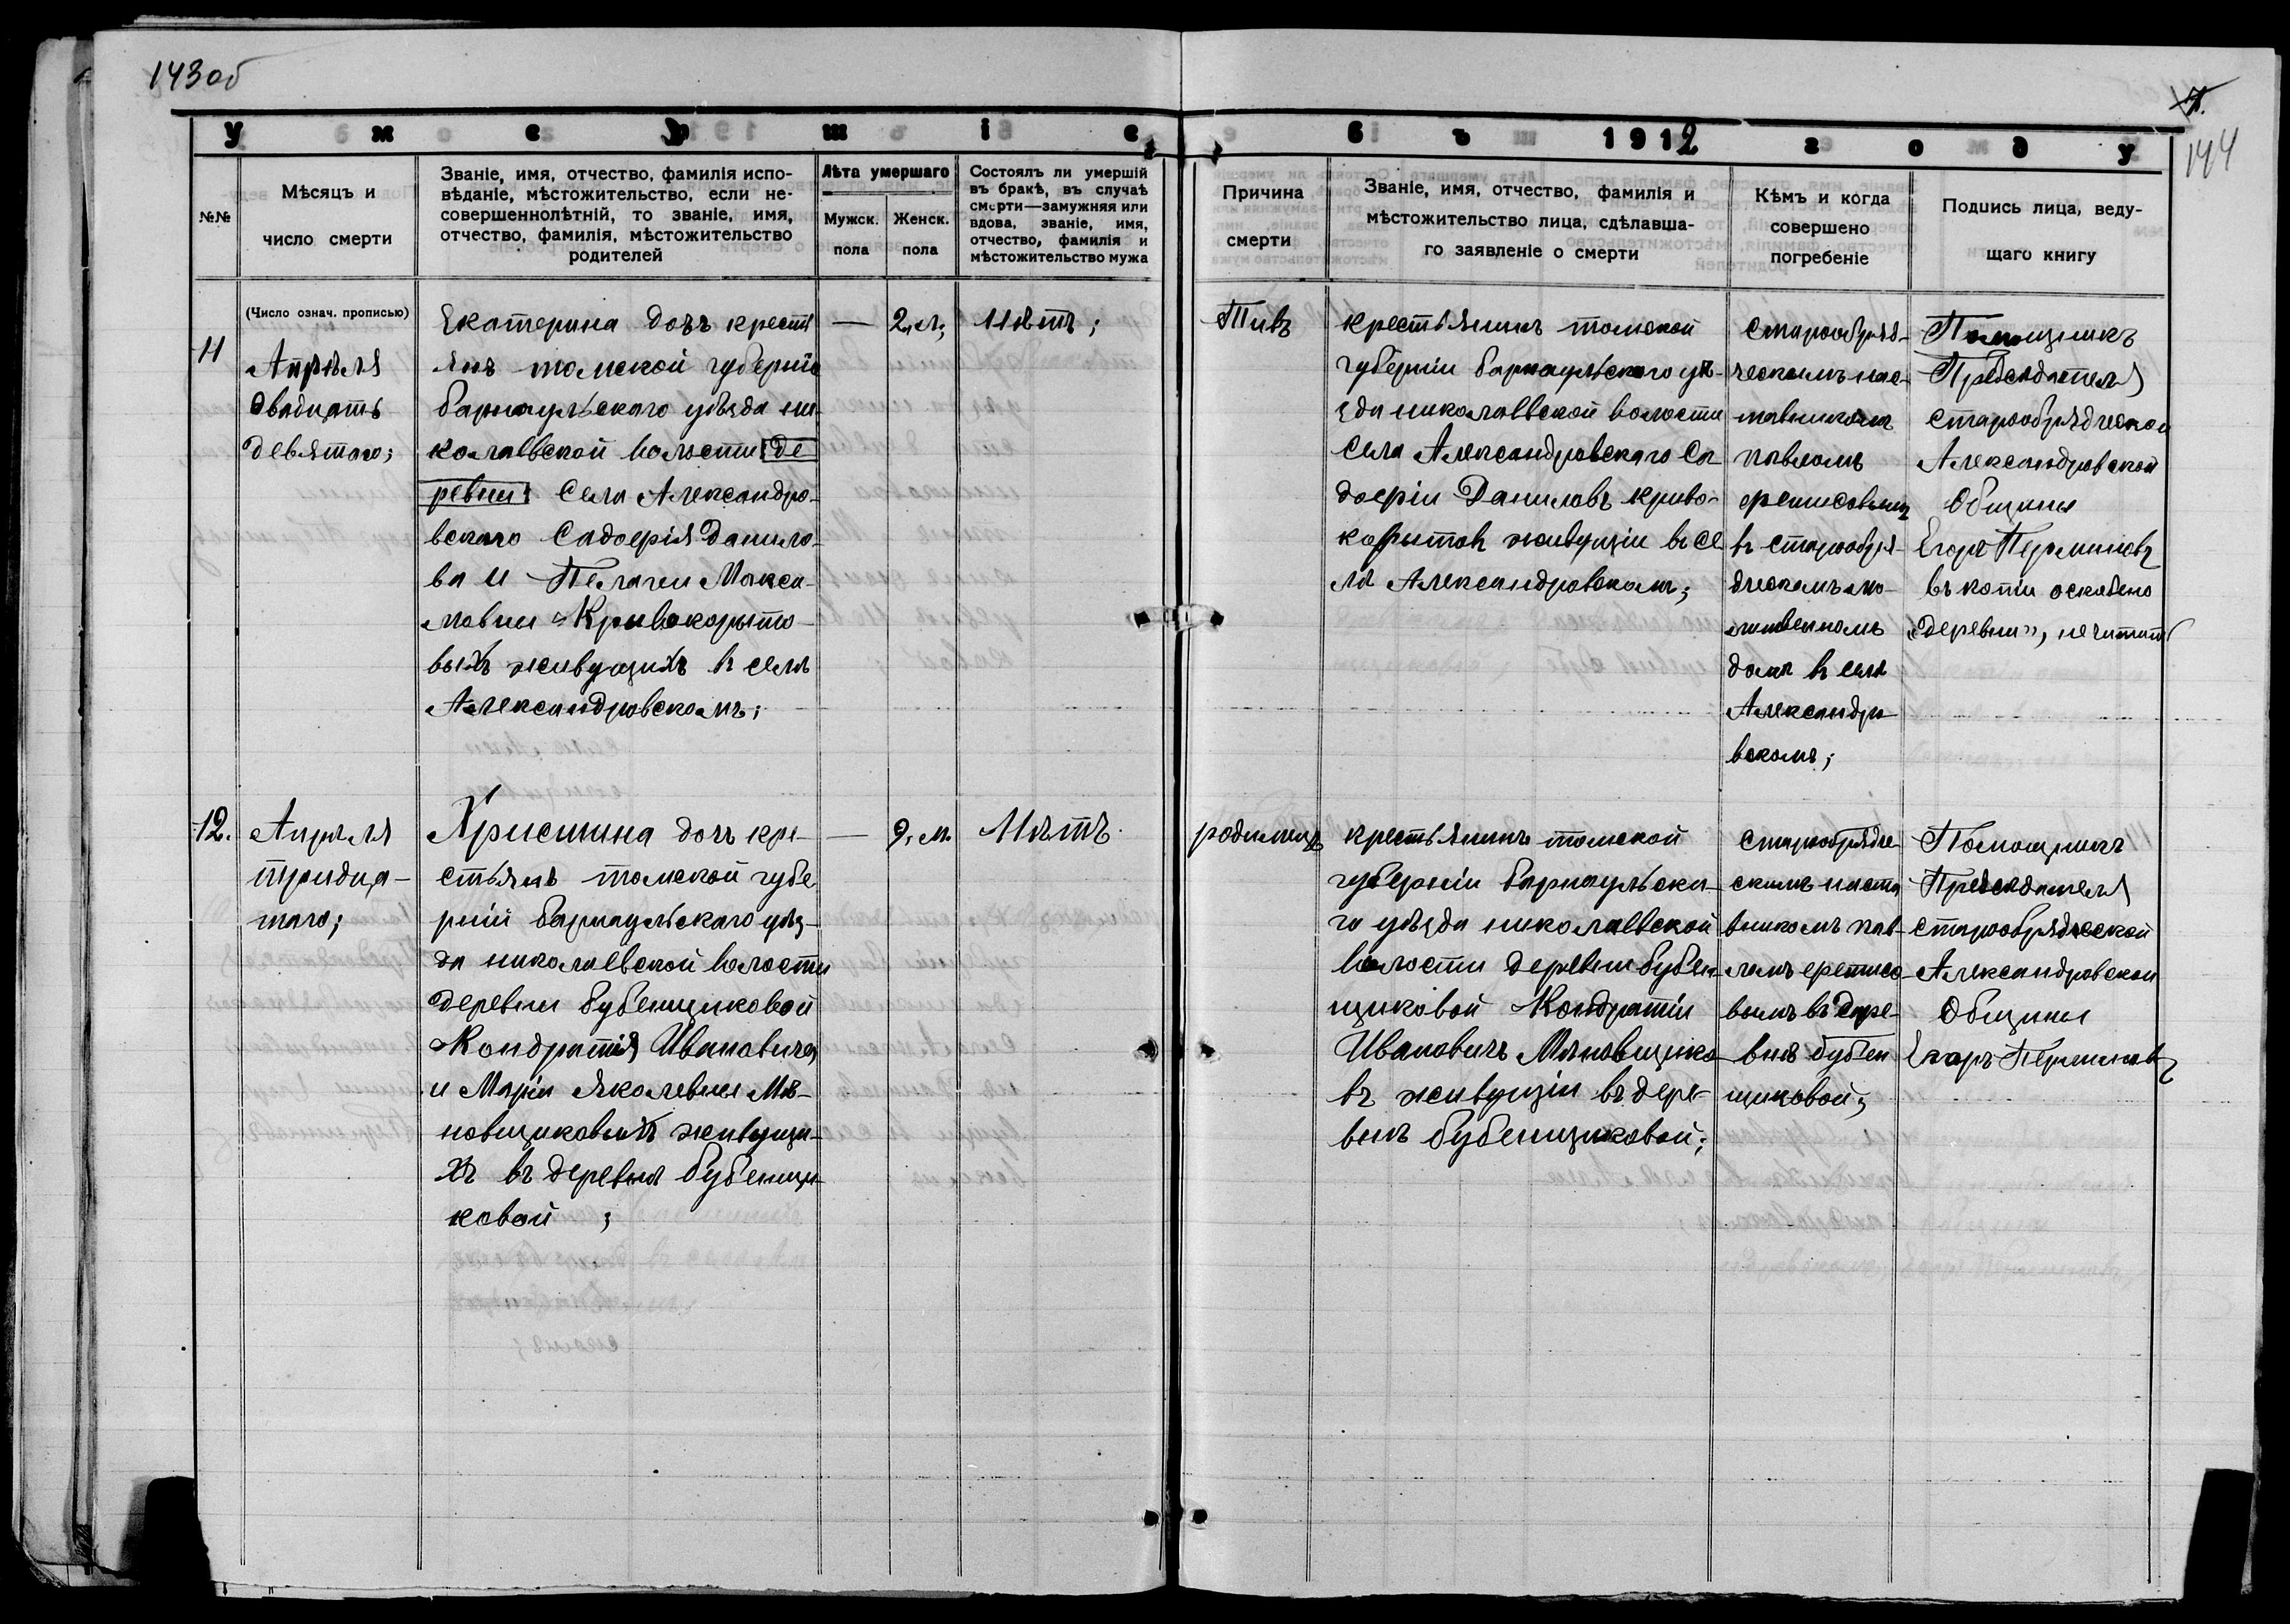 143 об
144
Умершіе
въ 1912 году
№№
Мѣсяцъ и
число смерти
Званіе, имя, отчество, фамилія испо-
вѣданіе, мѣстожительство, если не-
совершеннолѣтній, то званіе, имя,
отчество, фамилія, мѣстожительство
родителей
Лѣта умершаго
Мужск.
пола
Женск.
пола
Состоялъ ли умершій
въ бракѣ, въ случаѣ
смерти—замужняя или
вдова, званіе, имя,
отчество, фамилія и
мѣстожительство мужа
Причина
смерти
Званіе, имя, отчество, фамилія и
мѣстожительство лица, сдѣлавша-
го заявленіе о смерти
Кѣмъ и когда
совершено
погребеніе
Подпись лица, веду-
щаго книгу
11
(Число означ. прописью)
Апрѣля
двадцать
девятаго;
Екатерина дочь кресть
янъ томской губерніи
барнаульскаго уѣзда ни-
колаевской волости де
ревни села Александро-
вскаго Садоерія Данило-
ва и Пелагеи Макси-
мовны Кривокорыто-
выхъ живущихъ в селѣ
Александровскомъ;
—
2. л;
Нѣтъ;
Тивъ
крестьянинъ томской
губерніи барнаульскаго уѣ-
зда николаевской волости
села Александровскаго Са-
доерій Данилавъ криво-
корытов живущій в се
лѣ Александровскомъ;
старообряд-
ческимъ нас-
тавникомъ
павломъ
еретисовымъ
в старообря-
дческомъ мо-
литвенномъ
домѣ в селѣ
Александро-
вскомъ;
Помощникъ
Предсѣдателя
старообрядческой
Александровской
Общины
Егоръ Перминовъ
въ копіи оскоблено
„деревни“, не читать
12.
Апрѣля
тридца-
таго;
Христина дочь кре-
стьянъ томской губе
рніи барнаульскаго уѣз-
да николаевской волости
деревни бубенщиковой
Кондратія Ивановича
и Маріи Яколевны Мя-
новщиковыхъ живущи-
хъ въ деревнѣ бубенщи-
ковой;
—
9. м.
Нѣтъ.
родимецъ
крестьянинъ томской
губерніи барнаульска-
го уѣзда николаевской
волости деревни бубен
щиковой Кондратій
Ивановичъ Мяновщико
въ живущій въ дере-
внѣ бубенщиковой;
старообрядче-
скимъ наста
вникомъ пав-
ломъ еретисо
вымъ въ дере-
внѣ бубен
щиковой;
Помощникъ
Предсѣдателя
старообрядческой
Александровской
Общины
Егоръ Перминовъ